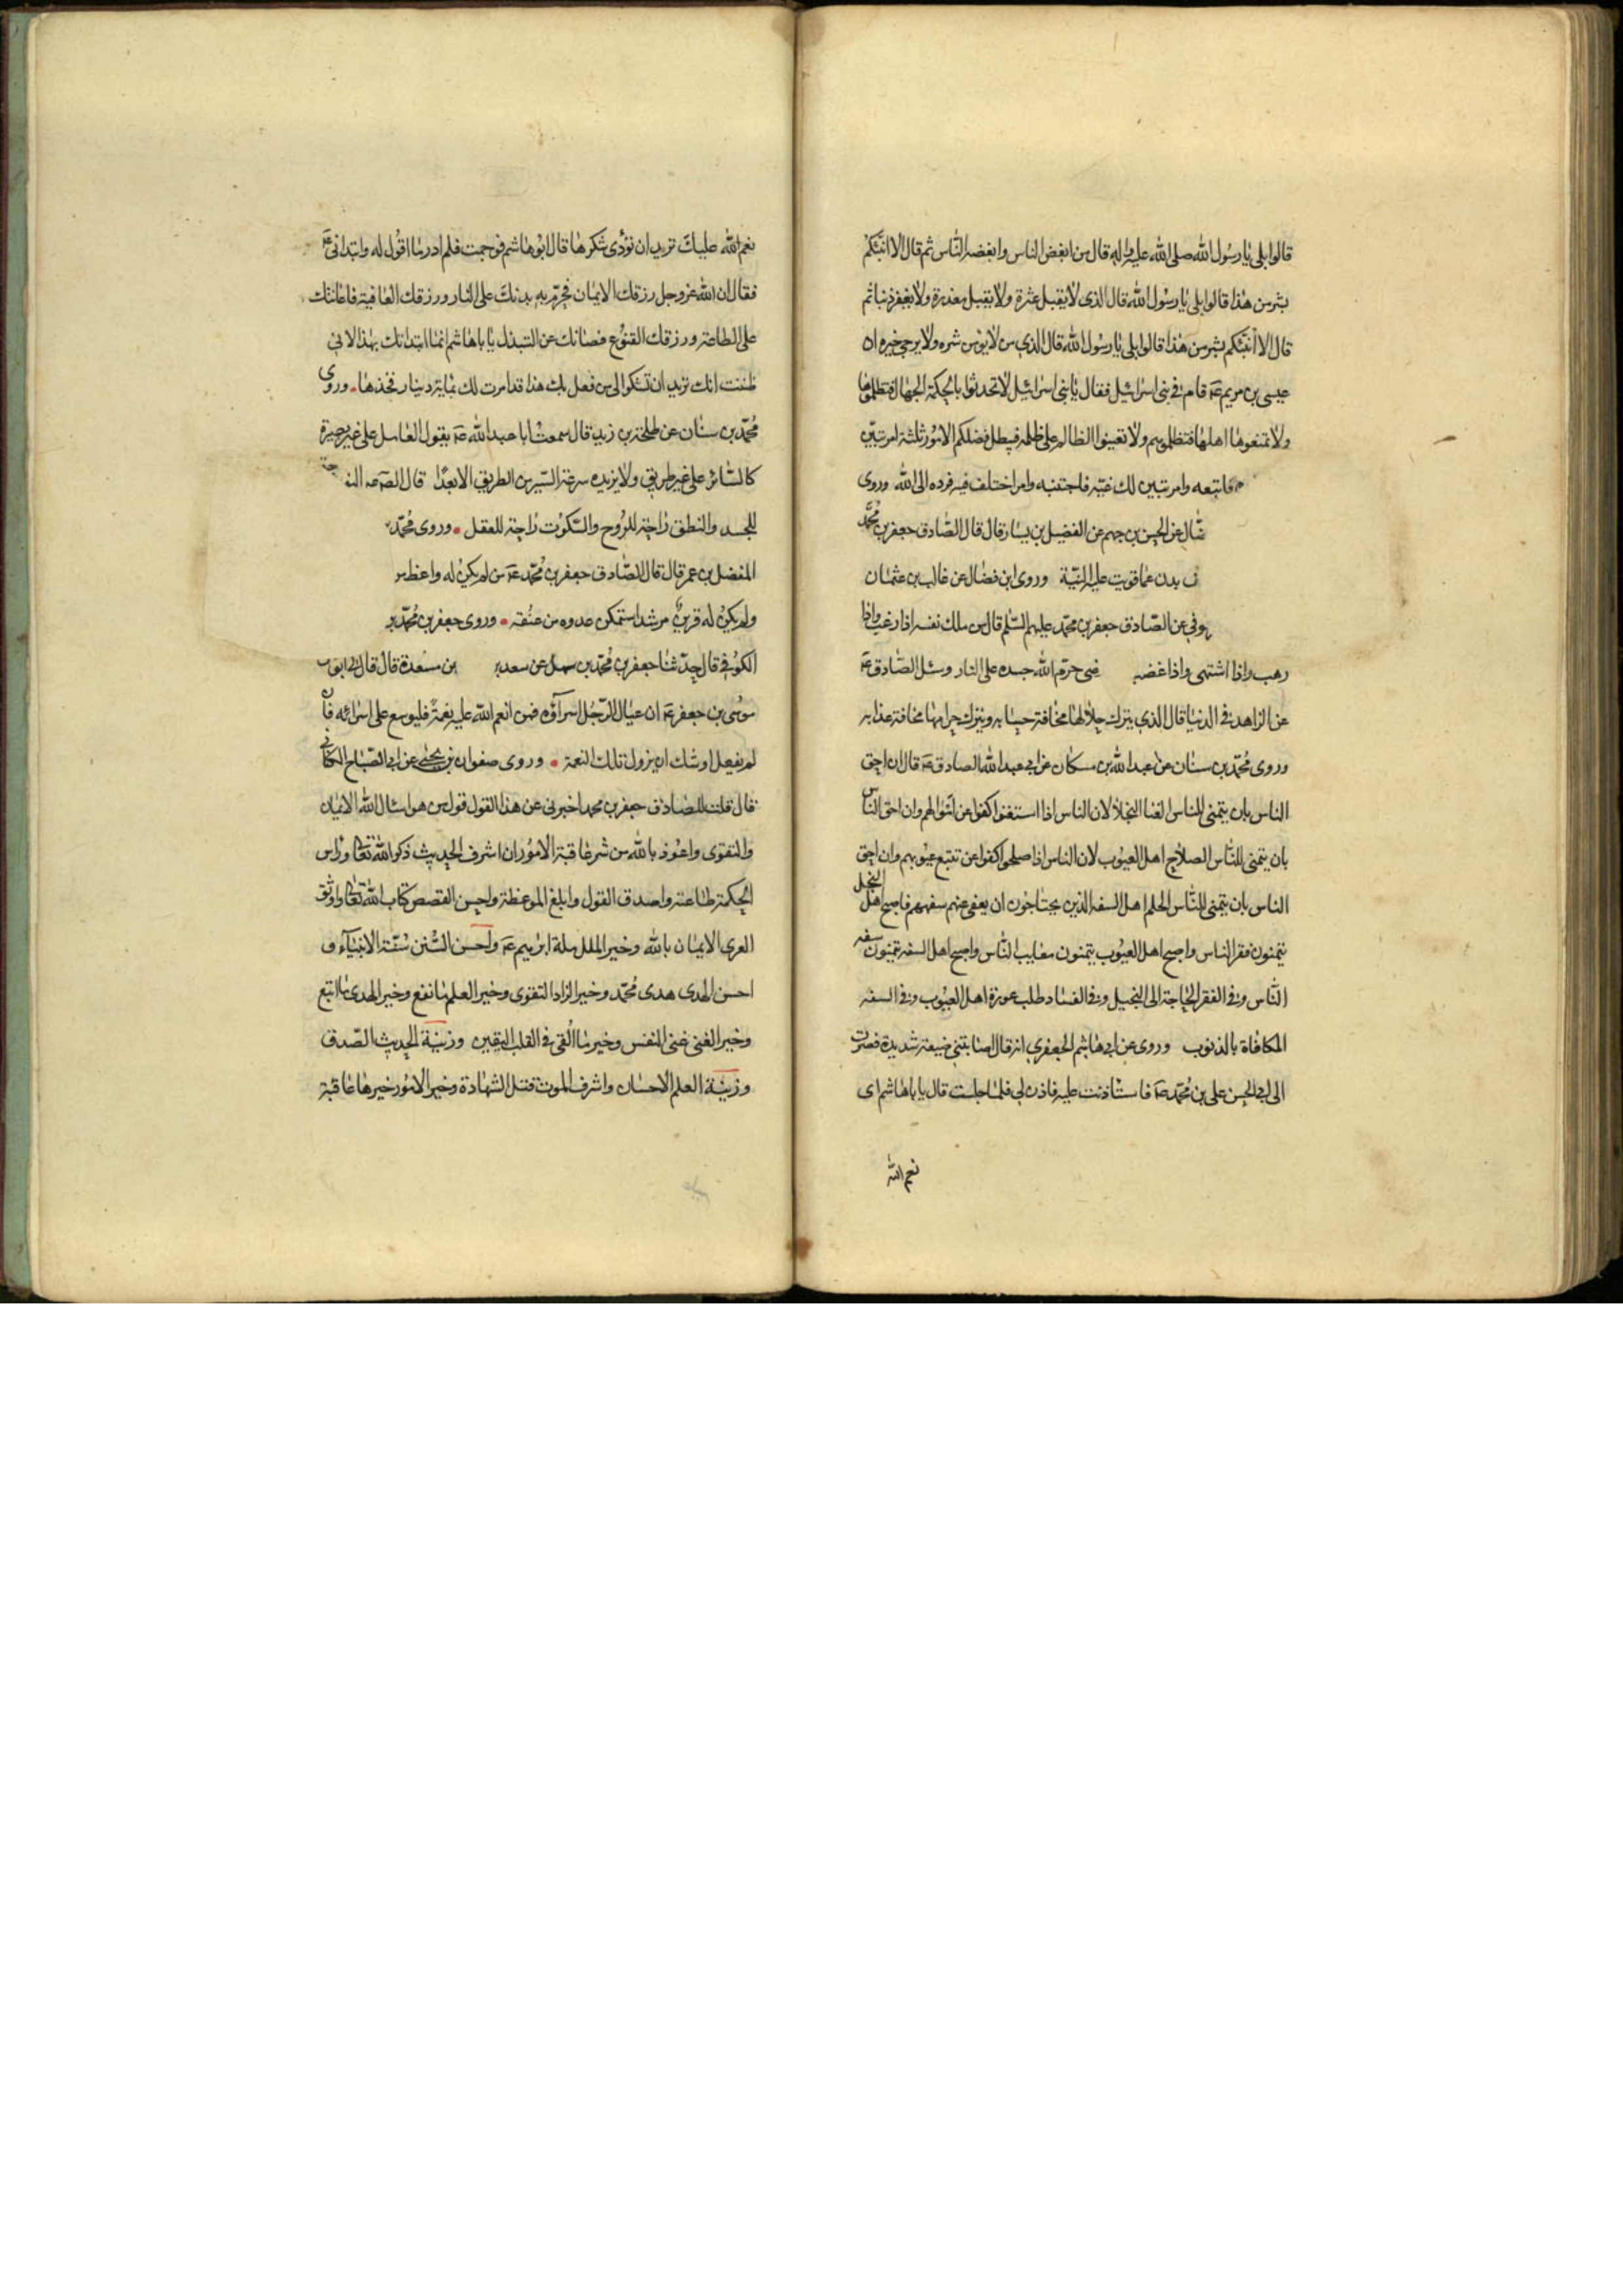 قالوا بلى يا رسول الله صلى الله عليه وآله قال من ابغض الناس وابغضه الناس ثم قال الا انبئكم
بشر من هذا قالوا بلى يا رسول الله قال الذى لا يقبل عثرة ولا يقبل معذرة ولا يغفر ذنبا ثم
قال الا انبئكم بشر من هذا قالوا بلى يا رسول الله قال الذي من لا يؤمن شره ولا يرجى خيره ان
عيسى بن مريم عَ قام فى بنى اسرائيل فقال يا بنى اسرائيل لا تحدثوا بالحكمة الجهال فتظلموها
ولا تمنعوها اهلها فتظلموهم ولا تعينوا الظالم على ظلمه فيبطل فضلكم الامور ثلثة امر تبين
فاتبعه وامر تبين لك غيّه فاجتنبه وامر اختلف فيه فرده الى الله وروى
ضّال عن الحسن بن جهم عن الفضيل بن يسار قال قال الصّادق جعفر بن محمّد
ف بدن عما قويت عليه النيّة وروى ابن فضال عن غالب بن عثمان
وفي عن الصّادق جعفر بن محمّد عليهم السّلم قال من ملك نفسه اذا رغب واذا
رهب واذا اشتهى واذا غضب ضى حرّم الله جسده على النار وسئل الصّادق عَ
عن الزاهد فى الدنيا قال الذي يترك حلالها مخافة حسابه ويترك حرامها مخافة عذابه
وروى محمّد بن سنان عن عبد الله بن مسكان عن ابي عبد الله الصادق عَ قال ان احق
الناس بان يتمنى للناس الغنا البخلا لان الناس اذا استغنوا كفوا عن اموالهم وان احق الناس
بان يتمنى للنّاس الصلاح اهل العيوب لان الناس اذا صلحوا كفوا عن تتبع عيوبهم وان احق
الناس بان يتمنى للنّاس الحلم اهل السفه الذين يحتاجون ان يعفى عنهم سفههم فاصبح اهل البخل
يتمنون فقر الناس واصبح اهل العيوب يتمنون معايب النّاس واصبح اهل السفه يتمنون سفه
النّاس وفى الفقر الحاجة الى البخيل وفى الفساد طلب عورة اهل العيوب وفى السفه
المكافاة بالذنوب وروى عن ابي هاشم الجعفري انه قال اصابتنى ضيقة شديدة فصرت
الى ابي الحسن على بن محمّد عَ فاستأذنت عليه فاذن لي فلما جلست قال يا باهاشم اى
نعم الله
نعم الله عليك تريد ان تؤدى شكرها قال ابو هاشم فوجمت فلم ادر ما اقول له وابتدانى عَ
فقال ان الله عز وجل رزقك الايمان فحرّم به بدنك على النار ورزقك العافية فاعانتك
على الطاعة ورزقك القنوع فصانك عن التبذل يا باهاشم انما ابتداتك بهذا لانى
ظننت انك تريد ان تشكوا لى من فعل بك هذا قد امرت لك بماية دينار فخذها وروى
محمّد بن سنان عن طلحة بن زيد قال سمعت ابا عبد الله عَ يقول العامل على غير بصيرة
كالسّائر على غير طريق ولا يزيده سرعة السّير من الطريق الا بعدًا قال الصّ عه النو
للجسد والنطق راحة للرّوح والسّكوت راحة للعقل وروى محمّد
المفضل بن عمر قال قال الصّادق جعفر بن محمّد عَ من لم يكن له واعظ
ولم يكن له قرين مرشد استمكن عدوه من عنقه وروى جعفر بن محمّد
الكوفى قال حدّثنا جعفر بن محمّد بن سهل عن سعد بن مسعدة قال قال لى ابو
موسى بن جعفر عَ ان عيال الرّجل اسراؤه فمن انعم الله عليه نعمة فليوسع على اسرائه فان
لم يفعل اوشك ان يزول تلك النعمة وروى صفوان بن يحيى عن ابي الصّباح الكنانى
قال قلت للصّادق جعفر بن محمد اخبرنى عن هذا القول قول من هو اسئال الله الايمان
والتقوى واعوذ بالله من شر عاقبة الامور ان اشرف الحديث ذكر الله تعالى وراس
الحكمة طاعته واصدق القول وابلغ الموعظة واحسن القصص كتاب الله تعالى واوثق
العرى الايمان بالله وخير الملل ملة ابراهيم عَ واحسن السّنن سنّة الانبياء و
احسن الهدى هدى محمّد وخير الزاد التقوى وخير العلم ما نفع وخير الهدى ما اتبع
وخير الغنى غنى النفس وخير ما القى فى القلب اليقين وزينة الحديث الصّدق
وزينة العلم الاحسان واشرف الموت قتل الشهادة وخير الامور خيرها عاقبة